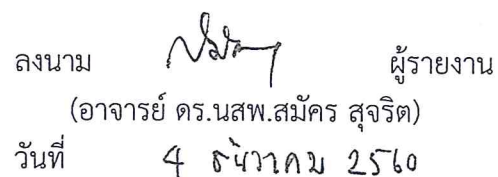 ลงนาม ผู้รายงาน
(อาจารย์ ดร.นสพ.สมัคร สุจริต)
วันที่ 4 ธันวาคม 2560